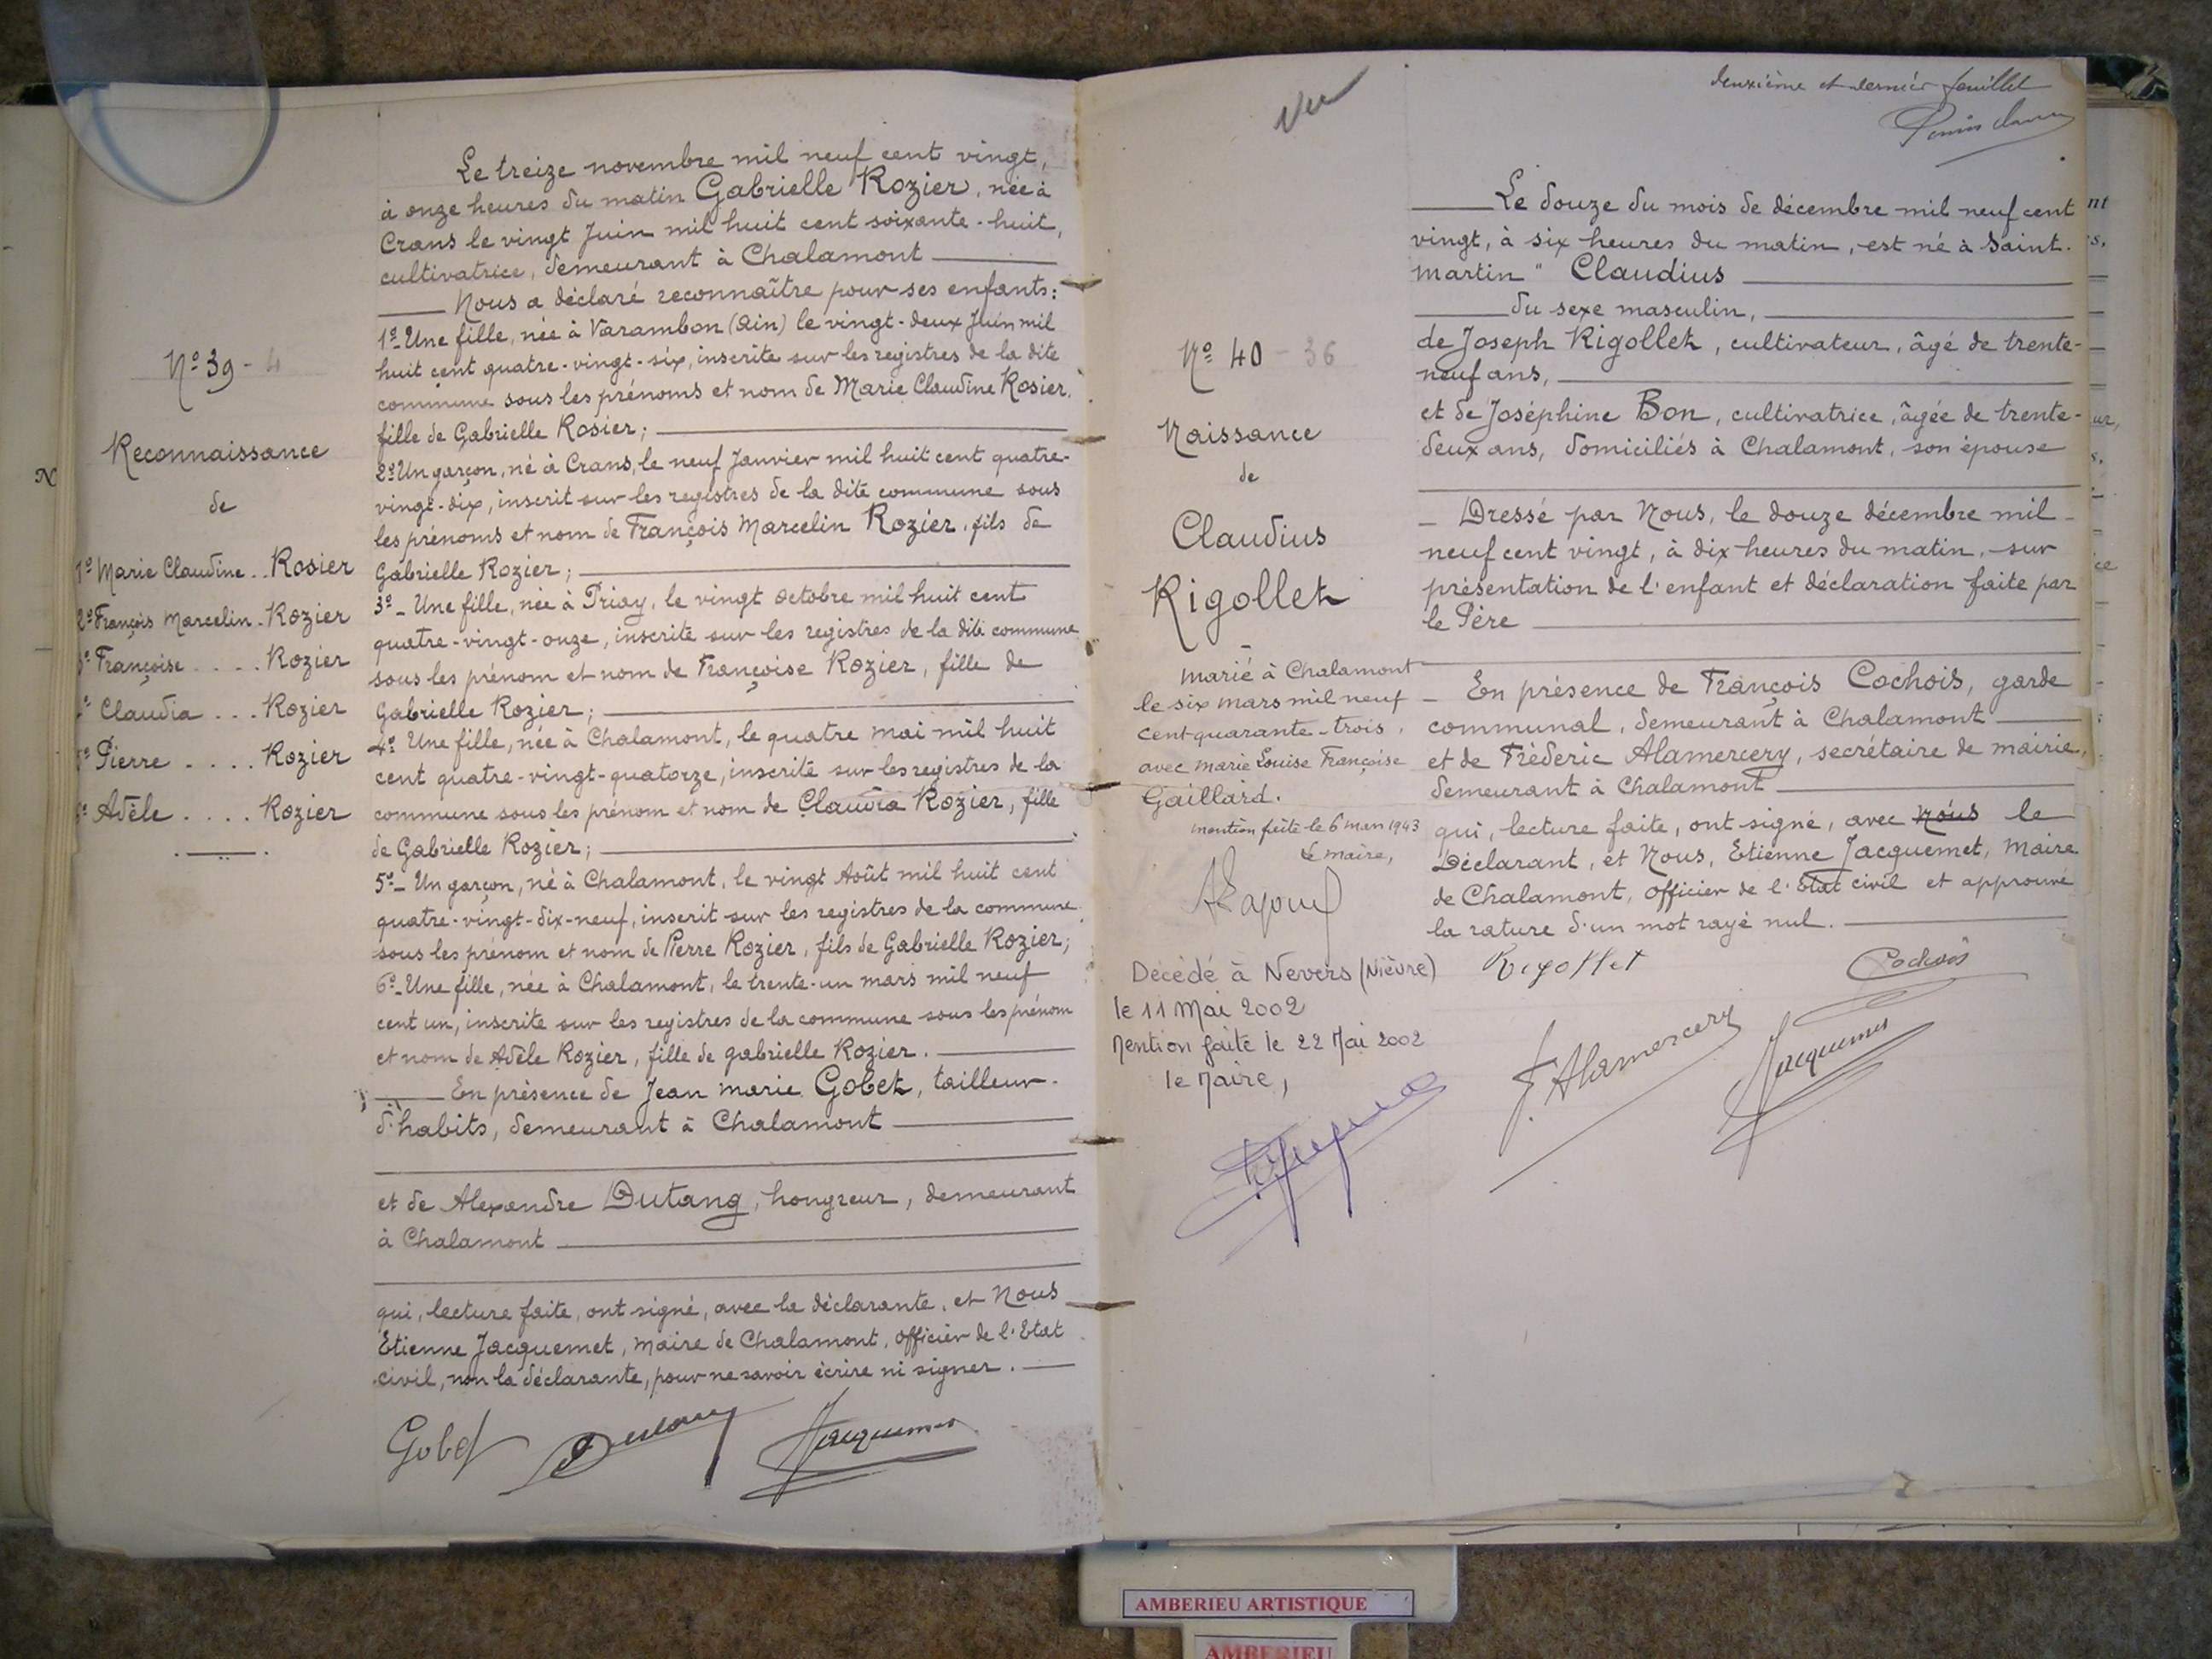 N
Nº 39 - 4
Reconnaissance
de
1º Marie Claudine . . Rosier
2º François Marcelin . Rozier
3º Françoise . . . . Rozier
4º Claudia . . . Rozier
5º Pierre . . . . Rozier
6º Adèle . . . . Rozier
Le treize novembre mil neuf cent vingt,
à onze heures du matin Gabrielle Rozier, née à
Crans le vingt Juin mil huit cent soixante-huit,
cultivatrice, demeurant à Chalamont
Nous a déclaré reconnaître pour ses enfants:
1º- Une fille, née à Varambon (Ain) le vingt-deux Juin mil
huit cent quatre-vingt-six, inscrite sur les registres de la dite
commune sous les prénoms et nom de Marie Claudine Rosier,
fille de Gabrielle Rosier;
2º Un garçon, né à Crans, le neuf Janvier mil huit cent quatre-
vingt-dix, inscrit sur les registres de la dite commune sous
les prénoms et nom de François Marcelin Rozier, fils de
Gabrielle Rozier;
3º- Une fille, née à Priay, le vingt octobre mil huit cent
quatre-vingt-onze, inscrite sur les registres de la dite commune
sous les prénom et nom de Françoise Rozier, fille de
Gabrielle Rozier;
4º Une fille, née à Chalamont, le quatre mai mil huit
cent quatre-vingt-quatorze, inscrite sur les registres de la
commune sous les prénom et nom de Claudia Rozier, fille
de Gabrielle Rozier;
5º- Un garçon, né à Chalamont, le vingt Août mil huit cent
quatre-vingt-dix-neuf, inscrit sur les registres de la commune
sous les prénom et nom de Pierre Rozier, fils de Gabrielle Rozier;
6º- Une fille, née à Chalamont, le trente-un mars mil neuf
cent un, inscrite sur les registres de la commune sous les prénom
et nom de Adèle Rozier, fille de gabrielle Rozier.
En présence de Jean marie Gobet, tailleur
d'habits, demeurant à Chalamont
et de Alexandre Dutang, hongreur, demeurant
à Chalamont
qui, lecture faite, ont signé, avec la déclarante, et Nous
Etienne Jacquemet, maire de Chalamont, officier de l'Etat
civil, non la déclarante, pour ne savoir écrire ni signer.
Gobet Dutang Jacquemet
Vu
deuxième et dernier feuillet
Nº 40 - 36
Naissance
de
Claudius
Rigollet
marié à Chalamont
le six mars mil neuf
cent quarante-trois,
avec marie Louise Françoise
Gaillard.
mention faite le 6 mars 1943
Le maire,
Décédé à Nevers (Nièvre)
le 11 Mai 2002
Mention faite le 22 Mai 2002
le Maire,
Le douze du mois de décembre mil neuf cent
vingt, à six heures du matin, est né à "Saint-
martin" Claudius
du sexe masculin,
de Joseph Rigollet, cultivateur, âgé de trente-
neuf ans,
et de Joséphine Bon, cultivatrice, âgée de trente-
deux ans, domiciliés à Chalamont, son épouse
Dressé par Nous, le douze décembre mil
neuf cent vingt, à dix heures du matin, sur
présentation de l'enfant et déclaration faite par
le Père
En présence de François Cochois, garde
communal, demeurant à Chalamont
et de Fréderic Alamercery, secrétaire de mairie,
demeurant à Chalamont
qui, lecture faite, ont signé, avec Nous le
Déclarant, et Nous, Etienne Jacquemet, Maire
de Chalamont, Officier de l'Etat civil et approuvé
la rature d'un mot rayé nul.
Rigollet Cochois
F. Alamercery Jacquemet
nt
s,
ur,
s.
ce
AMBERIEU ARTISTIQUE
AMBERIEU